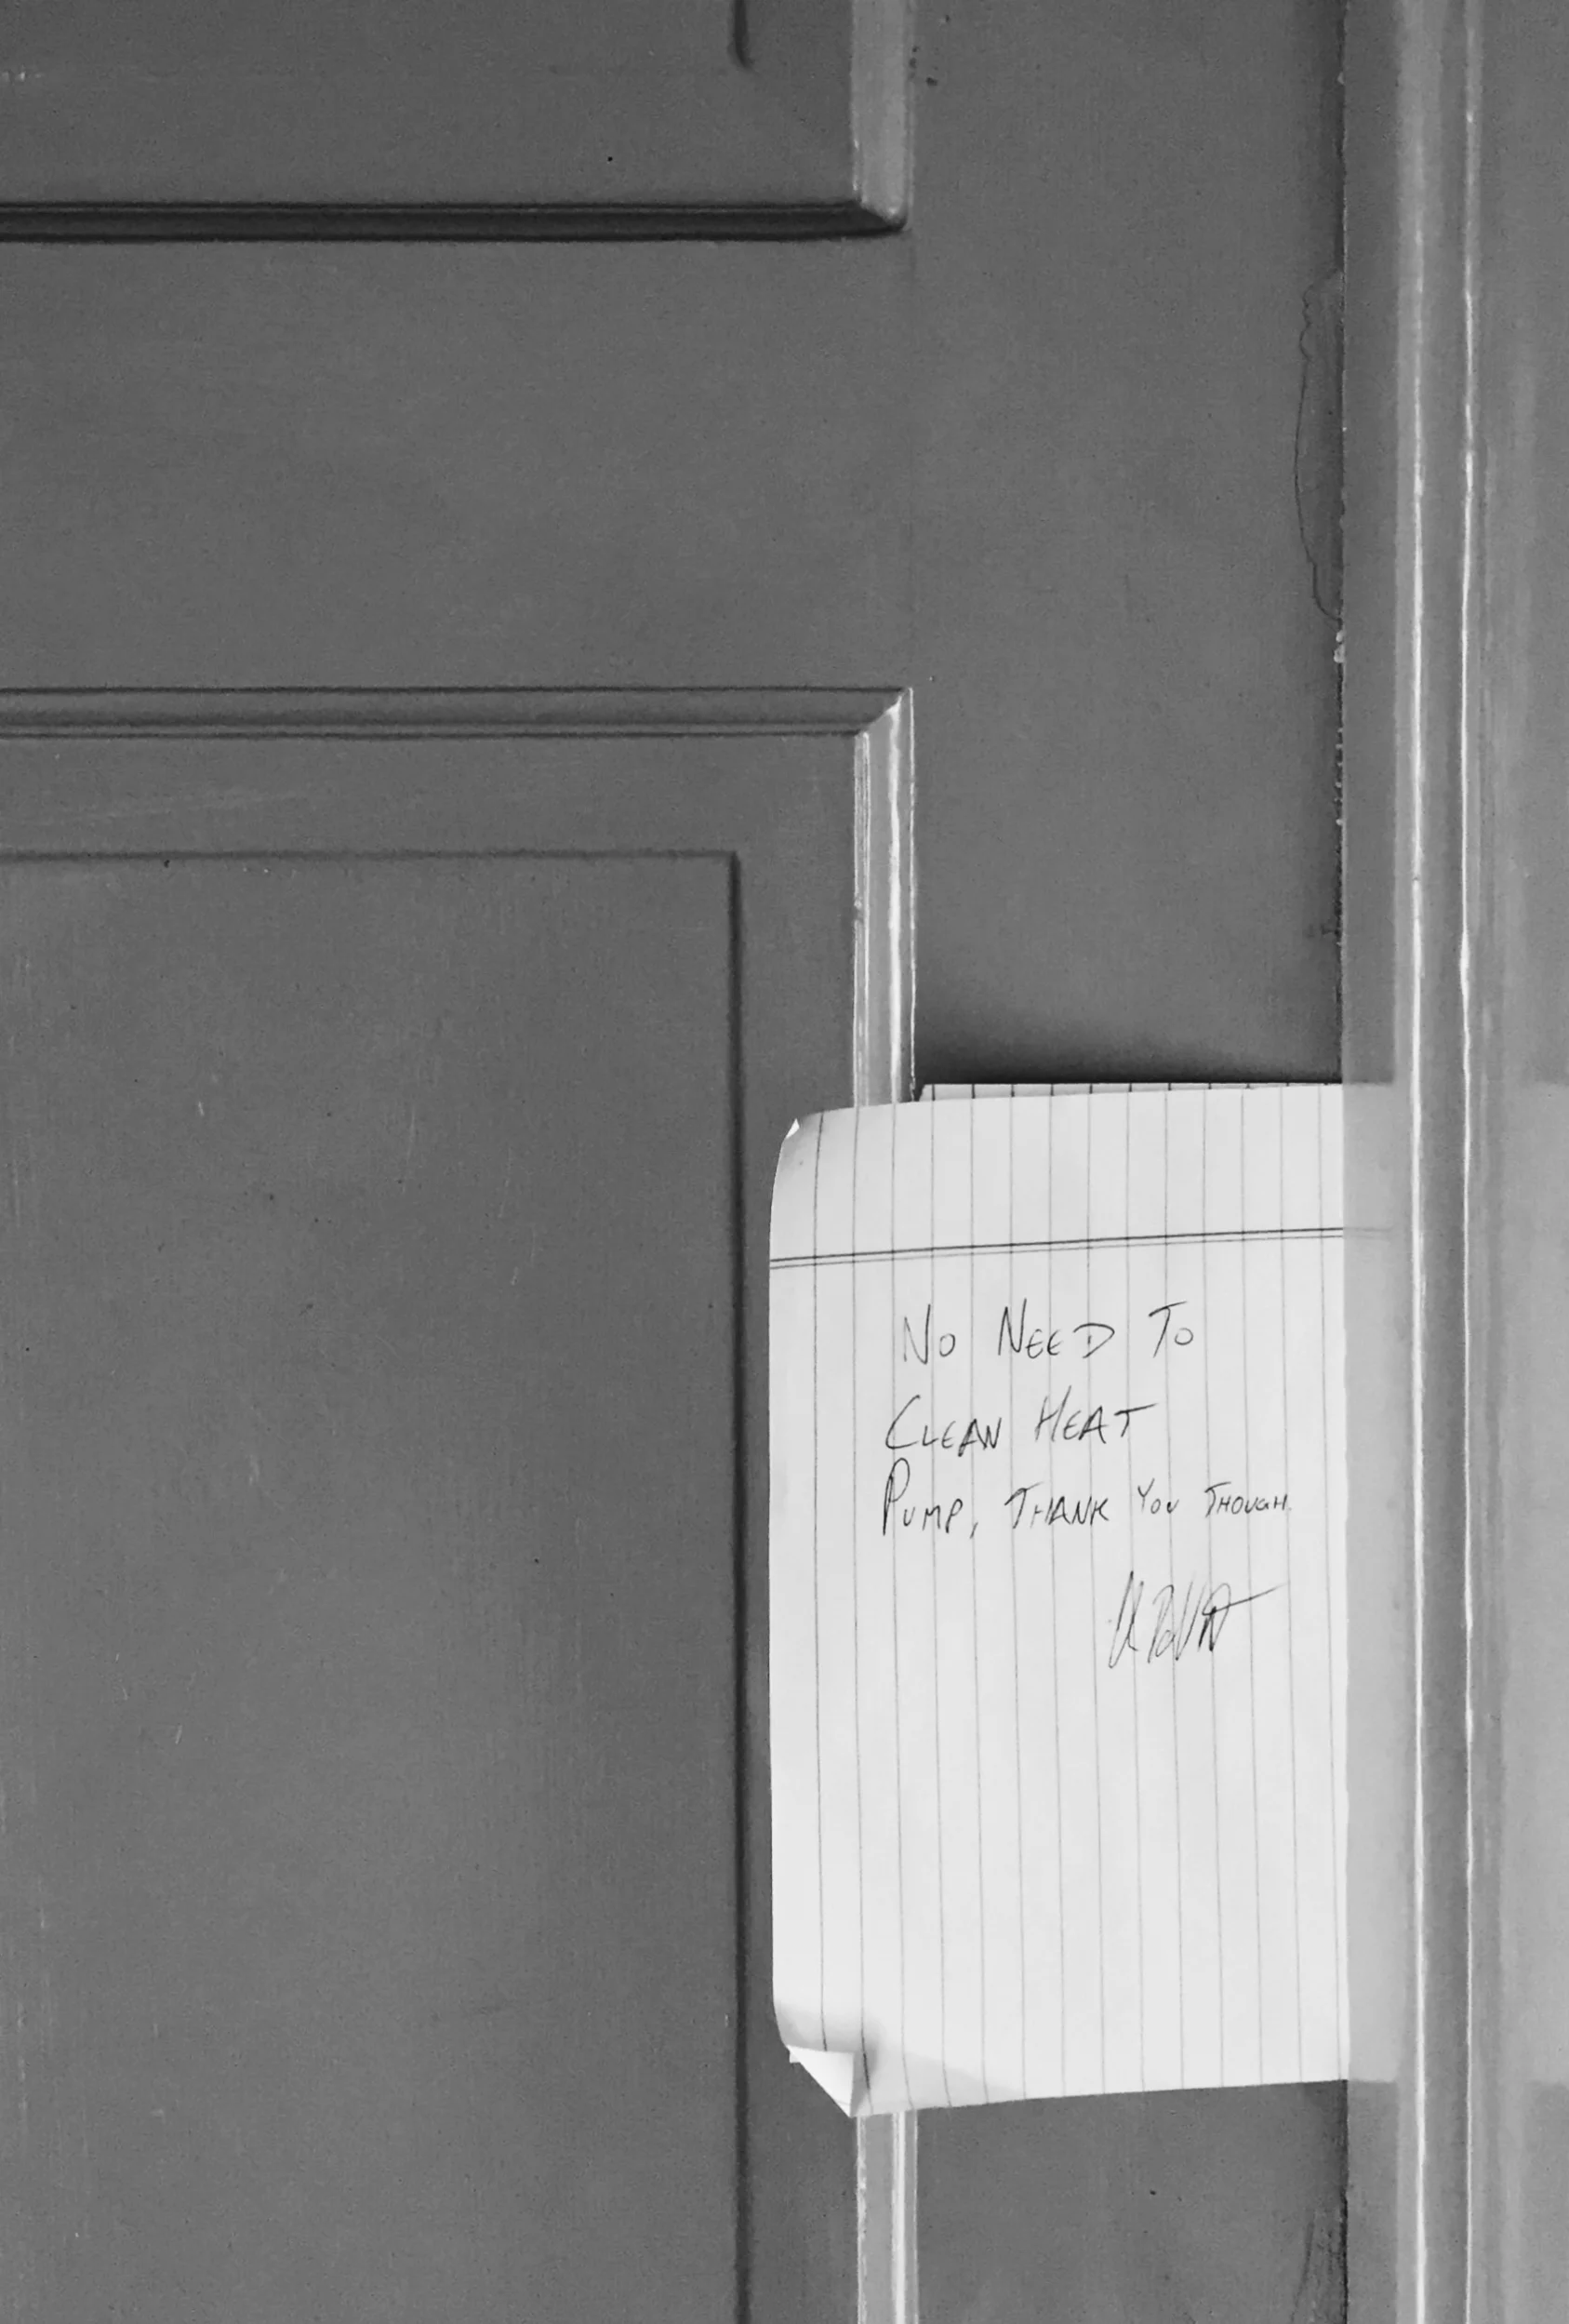 No Need To
Clean Heat
Pump, Thank You Though.